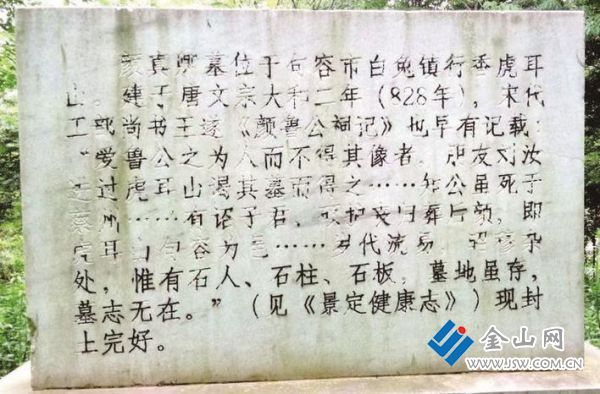 颜真卿墓位于句容市白兔镇行香虎耳
山。建于唐文宗大和二年（828年），宋代
工部尚书王遂《颜鲁公祠记》也早有记载：
“学鲁公之为人而不得其像者，朋友刘汝
进过虎耳山谒其墓而得之……维公虽死于
蔡州……有诏于君，護丧归葬 即
虎耳山句容为邑……岁代流易， 杂
处，惟有石人、石柱、石板，墓地虽存，
墓志无在。”（见《景定健康志》）现封
土完好。
金山网
WWW.JSW.COM.CN